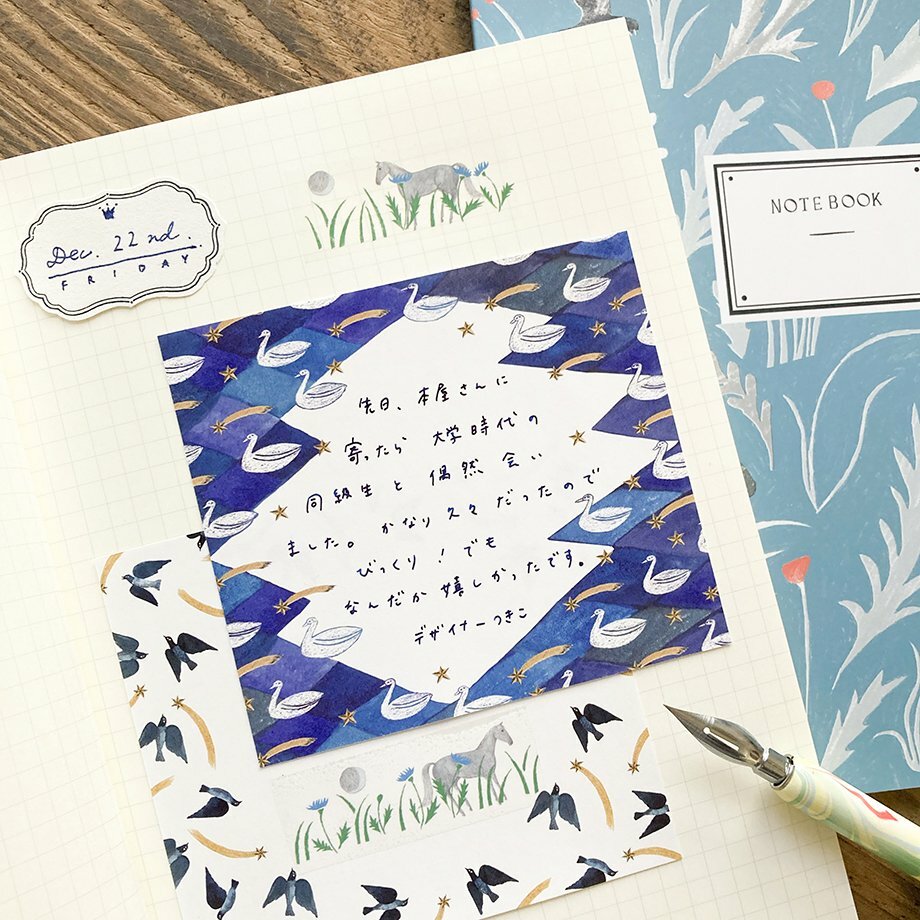 Dec. 22nd.
FRIDAY
NOTEBOOK
先日、本屋さんに
寄ったら 大学時代の
同級生と 偶然 会い
ました。かなり久々だったので
びっくり！でも
なんだか嬉しかったです。
デザイナーつきこ